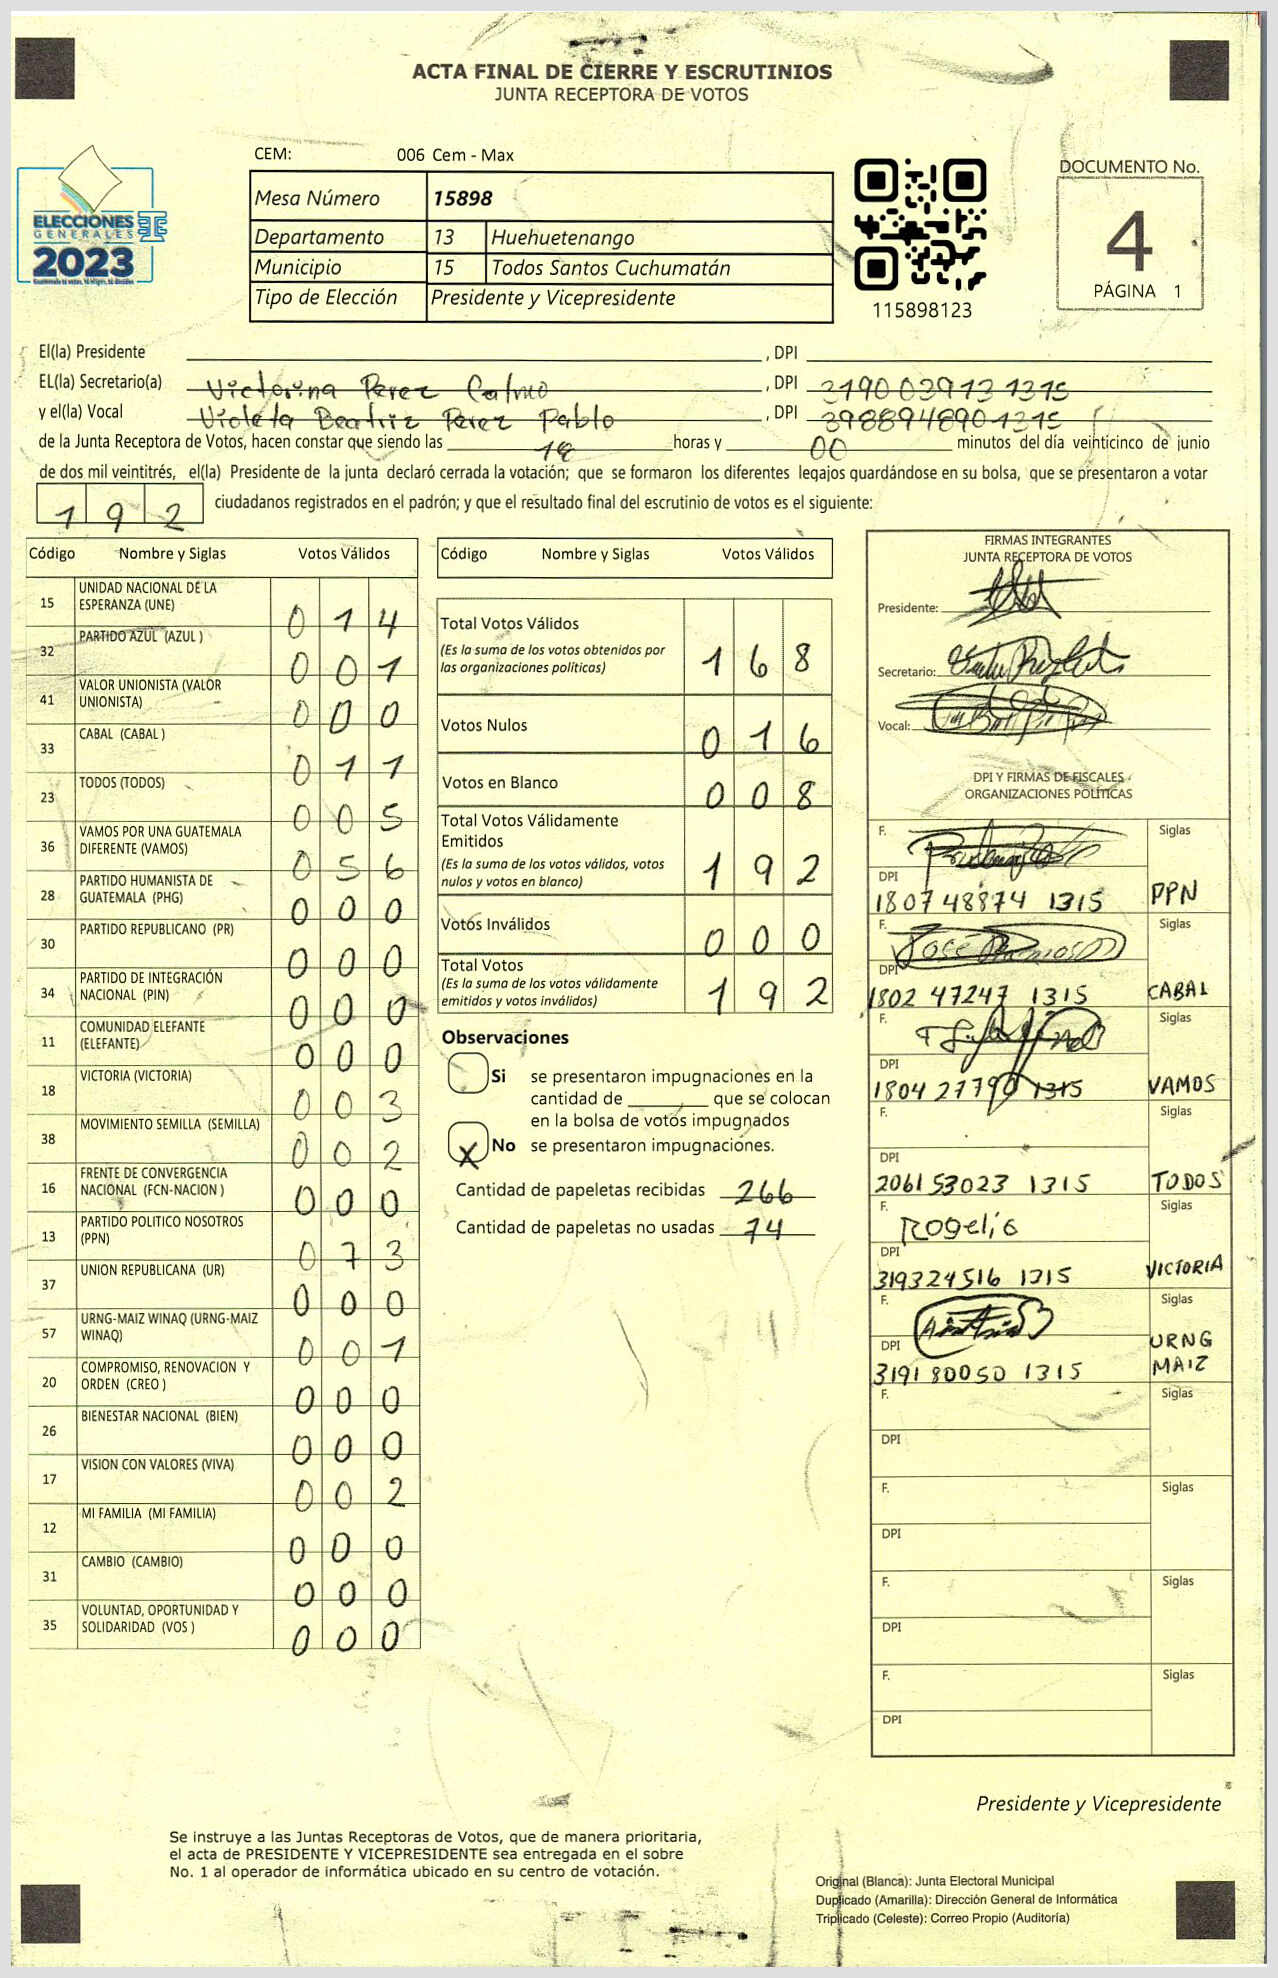 ACTA FINAL DE CIERRE Y ESCRUTINIOS
JUNTA RECEPTORA DE VOTOS
CEM: 006 Cem - Max
Mesa Número 15898
Departamento 13 Huehuetenango
Municipio 15 Todos Santos Cuchumatán
Tipo de Elección Presidente y Vicepresidente
ELECCIONES
GENERALES
2023
115898123
DOCUMENTO No.
4
PÁGINA 1
El(la) Presidente , DPI
EL(la) Secretario(a) Victorina Perez Calmo , DPI 3190 03913 1315
y el(la) Vocal Violeta Beatriz Perez Pablo , DPI 398894890 1315
de la Junta Receptora de Votos, hacen constar que siendo las 18 horas y 00 minutos del día veinticinco de junio
de dos mil veintitrés, el(la) Presidente de la junta declaró cerrada la votación; que se formaron los diferentes legajos guardándose en su bolsa, que se presentaron a votar
192 ciudadanos registrados en el padrón; y que el resultado final del escrutinio de votos es el siguiente:
Código Nombre y Siglas Votos Válidos
15 UNIDAD NACIONAL DE LA ESPERANZA (UNE) 0 1 4
32 PARTIDO AZUL (AZUL ) 0 0 1
41 VALOR UNIONISTA (VALOR UNIONISTA) 0 0 0
33 CABAL (CABAL ) 0 1 1
23 TODOS (TODOS) 0 0 5
36 VAMOS POR UNA GUATEMALA DIFERENTE (VAMOS) 0 5 6
28 PARTIDO HUMANISTA DE GUATEMALA (PHG) 0 0 0
30 PARTIDO REPUBLICANO (PR) 0 0 0
34 PARTIDO DE INTEGRACIÓN NACIONAL (PIN) 0 0 0
11 COMUNIDAD ELEFANTE (ELEFANTE) 0 0 0
18 VICTORIA (VICTORIA) 0 0 3
38 MOVIMIENTO SEMILLA (SEMILLA) 0 0 2
16 FRENTE DE CONVERGENCIA NACIONAL (FCN-NACION ) 0 0 0
13 PARTIDO POLITICO NOSOTROS (PPN) 0 7 3
37 UNION REPUBLICANA (UR) 0 0 0
57 URNG-MAIZ WINAQ (URNG-MAIZ WINAQ) 0 0 1
20 COMPROMISO, RENOVACION Y ORDEN (CREO ) 0 0 0
26 BIENESTAR NACIONAL (BIEN) 0 0 0
17 VISION CON VALORES (VIVA) 0 0 2
12 MI FAMILIA (MI FAMILIA) 0 0 0
31 CAMBIO (CAMBIO) 0 0 0
35 VOLUNTAD, OPORTUNIDAD Y SOLIDARIDAD (VOS ) 0 0 0
Código Nombre y Siglas Votos Válidos
Total Votos Válidos 1 6 8
(Es la suma de los votos obtenidos por
las organizaciones políticas)
Votos Nulos 0 1 6
Votos en Blanco 0 0 8
Total Votos Válidamente
Emitidos 1 9 2
(Es la suma de los votos válidos, votos
nulos y votos en blanco)
Votos Inválidos 0 0 0
Total Votos 1 9 2
(Es la suma de los votos válidamente
emitidos y votos inválidos)
Observaciones
Si se presentaron impugnaciones en la
cantidad de ________ que se colocan
en la bolsa de votos impugnados
X No se presentaron impugnaciones.
Cantidad de papeletas recibidas 266
Cantidad de papeletas no usadas 74
FIRMAS INTEGRANTES
JUNTA RECEPTORA DE VOTOS
Presidente:
Secretario:
Vocal:
DPI Y FIRMAS DE FISCALES
ORGANIZACIONES POLÍTICAS
F. Siglas
DPI
1807 48874 1315 PPN
F. José Siglas
DPI
1802 47247 1315 CABAL
F. Siglas
DPI
1804 27790 1315 VAMOS
F. Siglas
DPI
2061 53023 1315 TODOS
F. Rogelio Siglas
DPI
319324516 1315 VICTORIA
F. Siglas
DPI
3191 80050 1315 URNG MAIZ
F. Siglas
DPI
F. Siglas
DPI
F. Siglas
DPI
F. Siglas
DPI
Presidente y Vicepresidente
Se instruye a las Juntas Receptoras de Votos, que de manera prioritaria,
el acta de PRESIDENTE Y VICEPRESIDENTE sea entregada en el sobre
No. 1 al operador de informática ubicado en su centro de votación.
Original (Blanca): Junta Electoral Municipal
Duplicado (Amarilla): Dirección General de Informática
Triplicado (Celeste): Correo Propio (Auditoría)